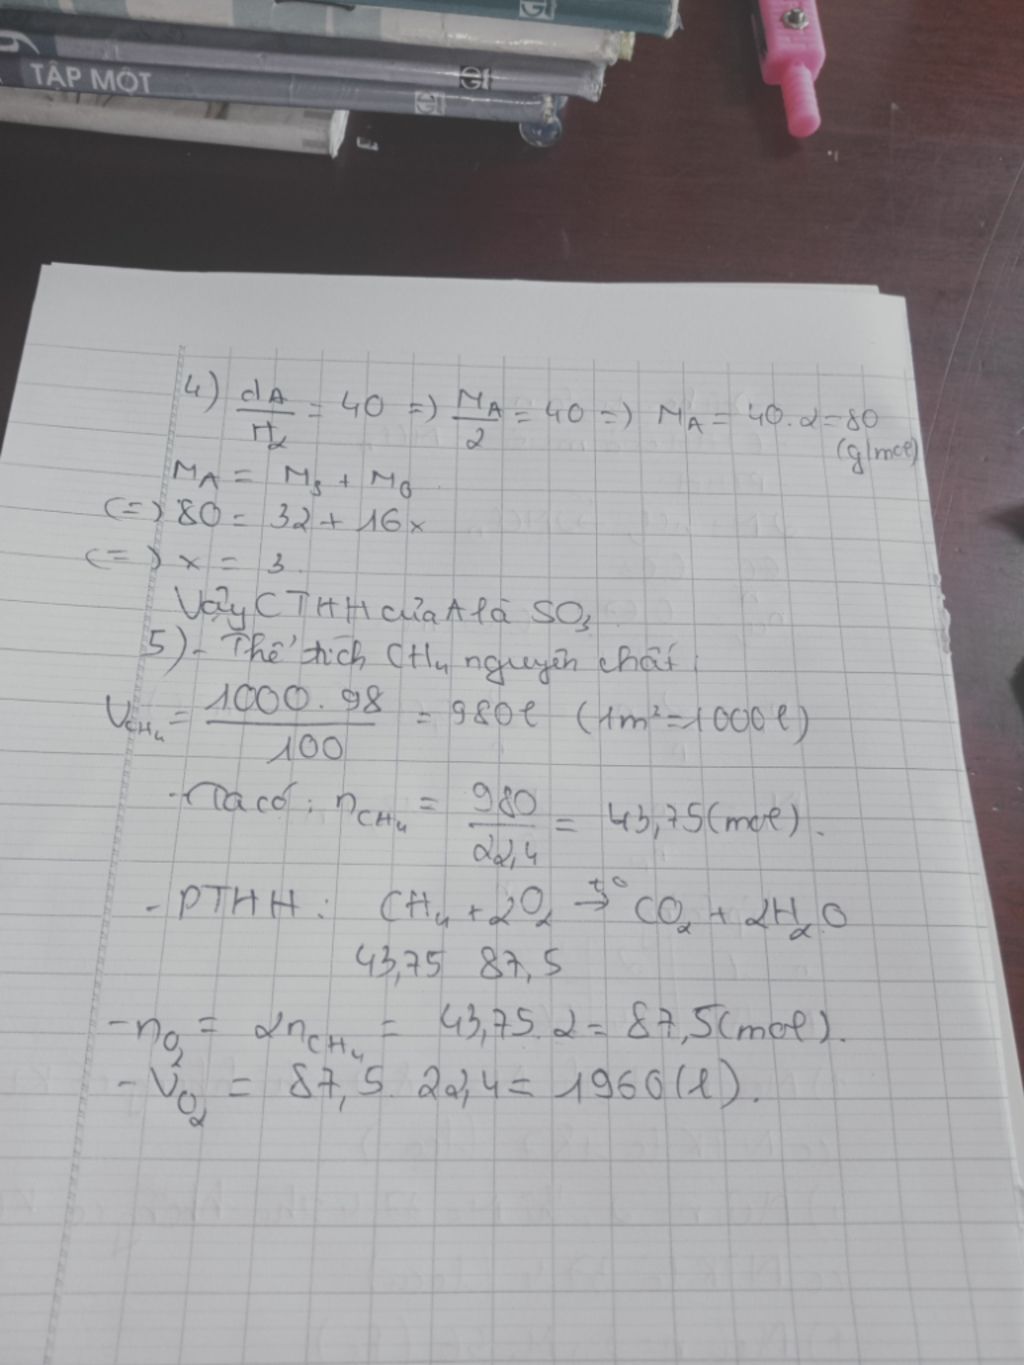 TẬP MỘT
4) dA/H₂ = 40 =) MA/2 = 40 =) MA = 40.2 = 80
(g/mol)
MA = MS + MO
(=) 80 = 32 + 16x
(=) x = 3.
Vậy CTHH của A là SO₃
5) - Thể tích CH₄ nguyên chất:
VCH₄ = 1000.98/100 = 980l (1m² = 1000l)
- Ta có: nCH₄ = 980/22,4 = 43,75 (mol).
- PTHH: CH₄ + 2O₂ →t° CO₂ + 2H₂O
43,75 87,5
- nO₂ = 2nCH₄ = 43,75.2 = 87,5 (mol).
- VO₂ = 87,5.22,4 = 1960 (l).